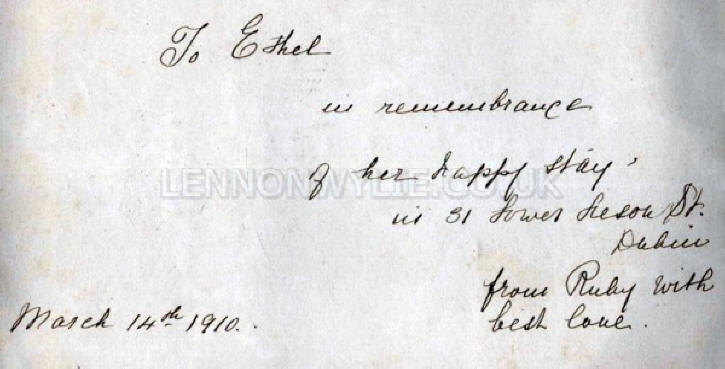 To Ethel
in remembrance
of her happy stay
in 31 Lower Leeson St.
Dublin
from Ruby with
best love.
March 14th 1910.
LENNONWYLIE.CO.UK